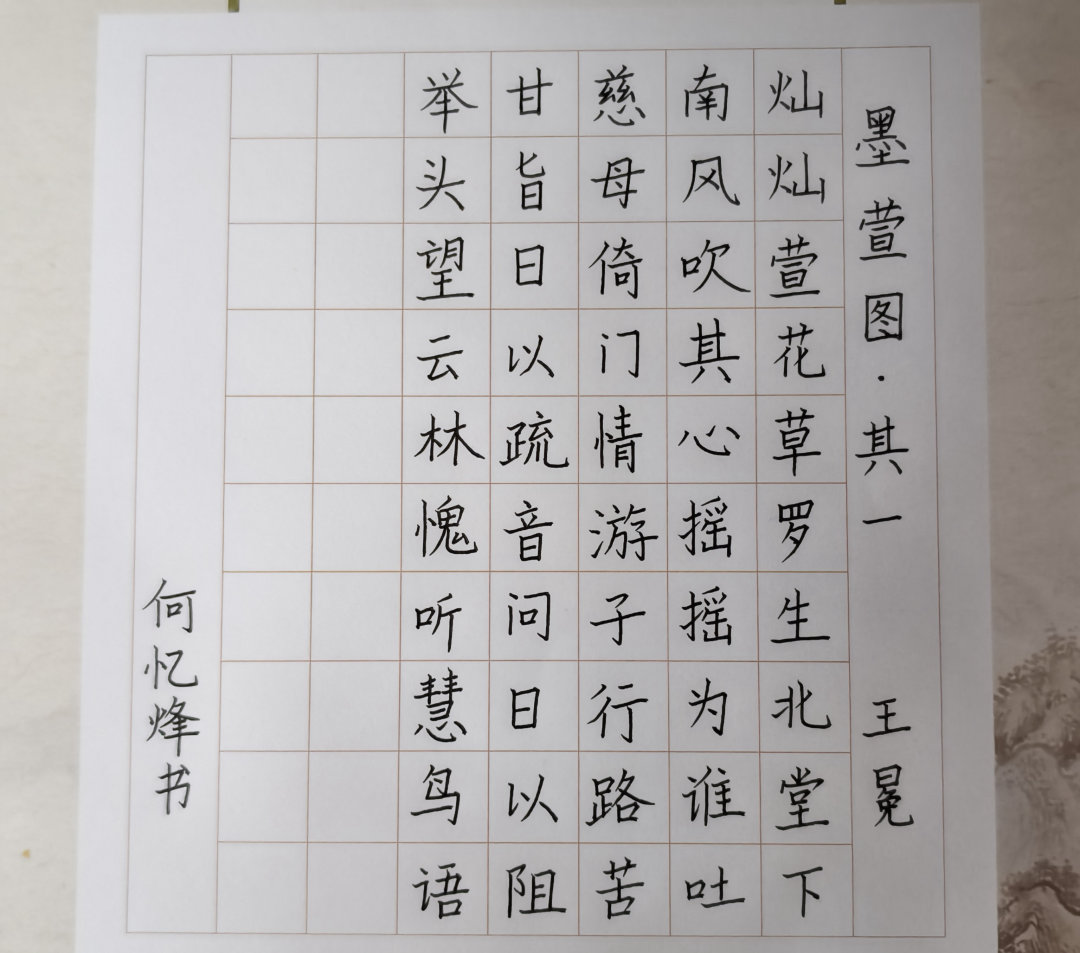 墨萱图·其一 王冕
灿灿萱花草罗生北堂下
南风吹其心摇摇为谁吐
慈母倚门情游子行路苦
甘旨日以疏音问日以阻
举头望云林愧听慧鸟语
何忆烽书